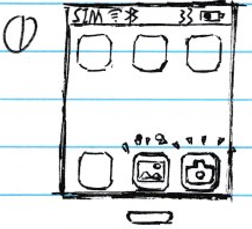 ①
SIM 33